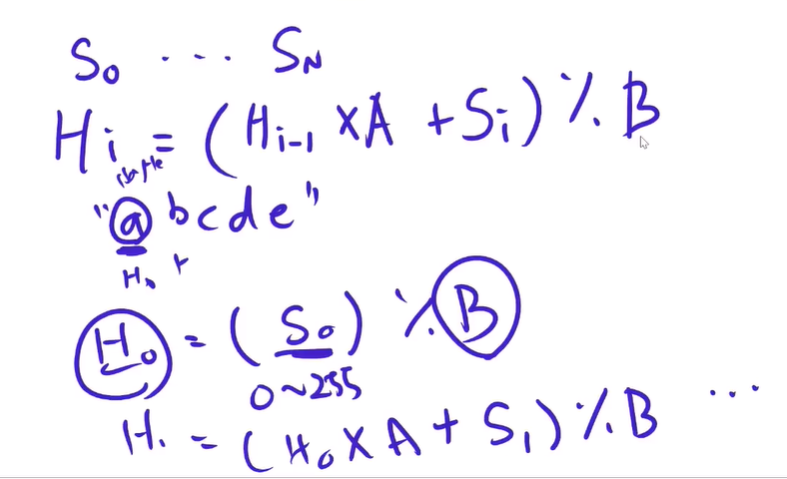 S₀ ... S_N
H_i = (H_{i-1} × A + S_i) % B
"abcde"
H₀
H₀ = (S₀) % B
0~255
H₁ = (H₀ × A + S₁) % B ...